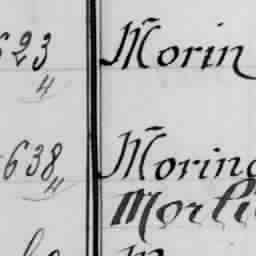 623 Morin
4
638 Morin
4
Morli